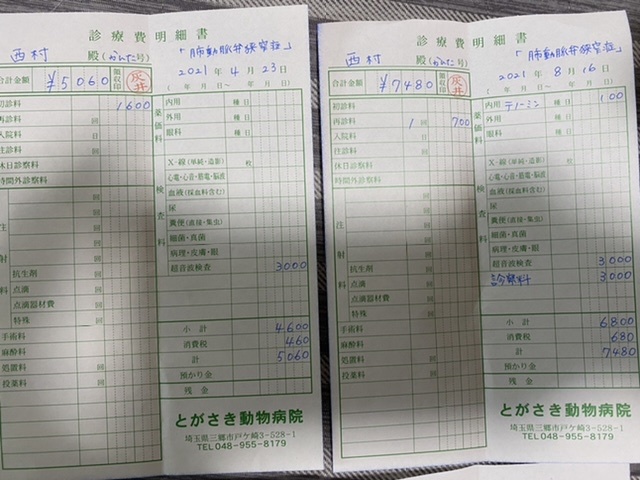 診療費明細書
西村 殿(かんた号)
「肺動脈弁狭窄症」
合計金額 ¥5060 領収印
2021年4月23日
( 年 月 日〜 年 月 日)
初診料 1600
再診料 回
入院料 日
往診料 回
休日診察料
時間外診察料
注射料
抗生剤 回
点滴 回
点滴器材費 回
特殊 回
手術料
麻酔料 回
処置料 回
投薬料 回
薬価料
内用 種 日
外用 種 日
眼科 種 日
検査料
X-線(単純・造影) 枚
心電・心音・筋電・脳波
血液(採血料含む)
尿
糞便(直接・集虫)
細菌・真菌
病理・皮膚・眼
超音波検査 3000
小計 4600
消費税 460
計 5060
預かり金
残金
とがさき動物病院
埼玉県三郷市戸ケ崎3-528-1
TEL048-955-8179
診療費明細書
西村 殿(かんた号)
「肺動脈弁狭窄症」
合計金額 ¥7480 領収印
2021年8月16日
( 年 月 日〜 年 月 日)
初診料
再診料 1回 700
入院料 日
往診料 回
休日診察料
時間外診察料
注射料
抗生剤 回
点滴 回
点滴器材費 回
特殊 回
手術料
麻酔料 回
処置料 回
投薬料 回
薬価料
内用 テノーミン 種 日 100
外用 種 日
眼科 種 日
検査料
X-線(単純・造影) 枚
心電・心音・筋電・脳波
血液(採血料含む)
尿
糞便(直接・集虫)
細菌・真菌
病理・皮膚・眼
超音波検査 3000
診察料 3000
小計 6800
消費税 680
計 7480
預かり金
残金
とがさき動物病院
埼玉県三郷市戸ケ崎3-528-1
TEL048-955-8179